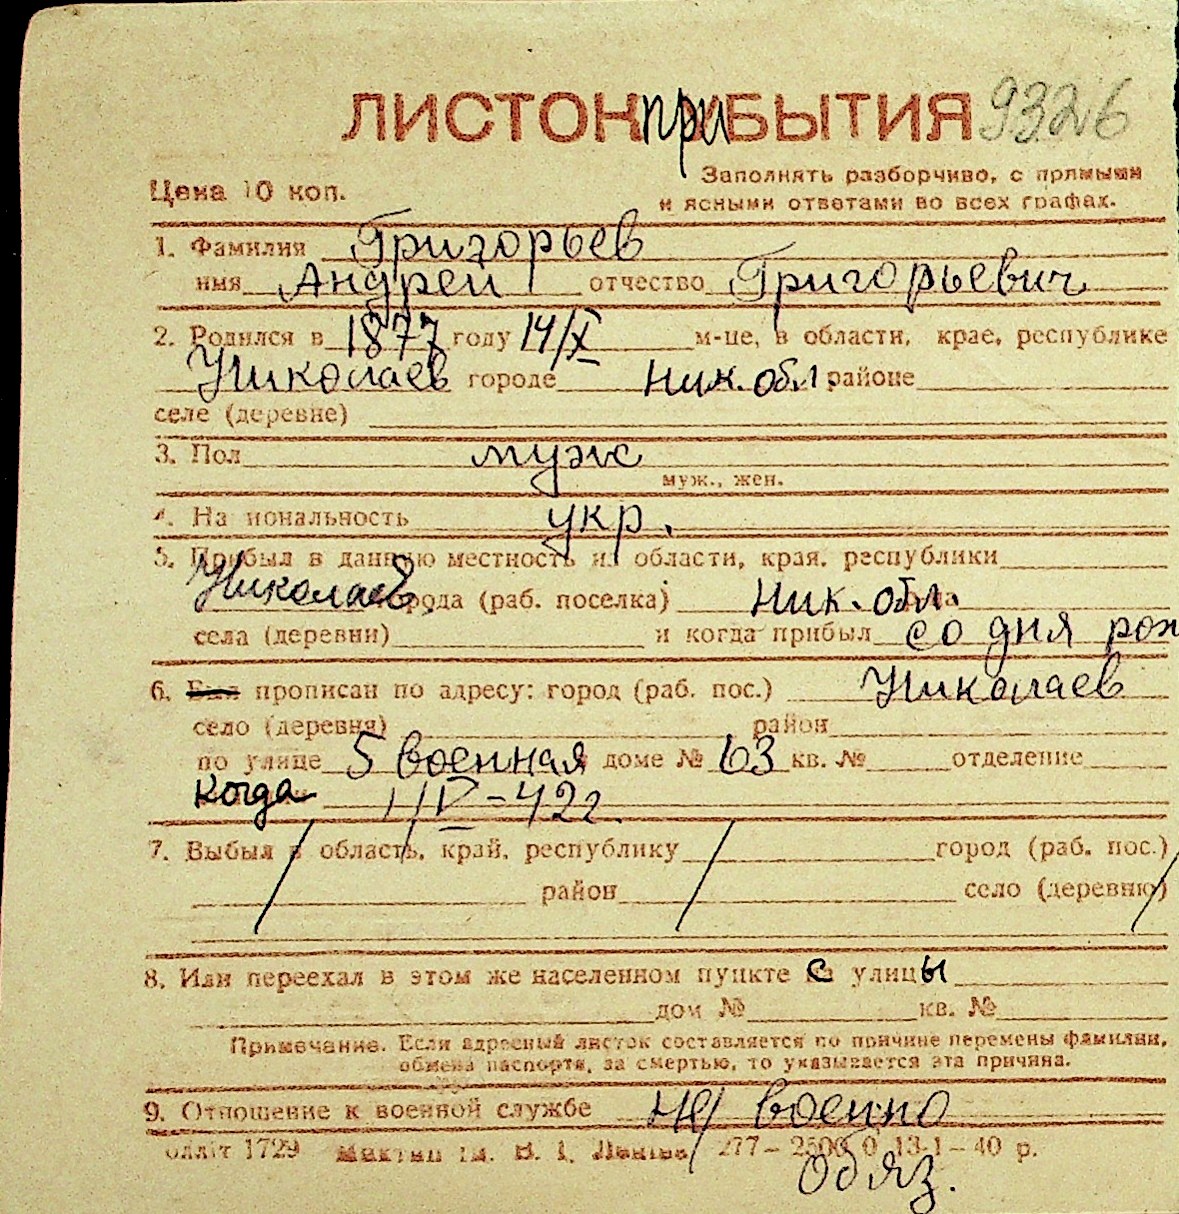 ЛИСТОК приБЫТИЯ 9326
Цена 10 коп.
Заполнять разборчиво, с прямыми
и ясными ответами во всех графах.
1. Фамилия Григорьев
имя Андрей отчество Григорьевич
2. Родился в 1877 году 14/X м-це, в области, крае, республике
Николаев городе Ник. обл районе
селе (деревне)
3. Пол муж
муж., жен.
4. Национальность укр.
5. Прибыл в данную местность из области, края, республики
Николаев города (раб. поселка) Ник. обл.
села (деревни) и когда прибыл со дня рож
6. прописан по адресу: город (раб. пос.) Николаев
село (деревня) район
по улице 5 военная доме № 63 кв. № отделение
Когда 1/IV-42г.
7. Выбыл в область, край, республику город (раб. пос.)
район село (деревню)
8. Или переехал в этом же населенном пункте с улицы
дом № кв. №
Примечание. Если адресный листок составляется по причине перемены фамилии,
обмена паспорта, за смертью, то указывается эта причина.
9. Отношение к военной службе не военно
обллiт 1729 iм. В. I. Ленiна 277– 2500 0 13-1–40 р.
обяз.